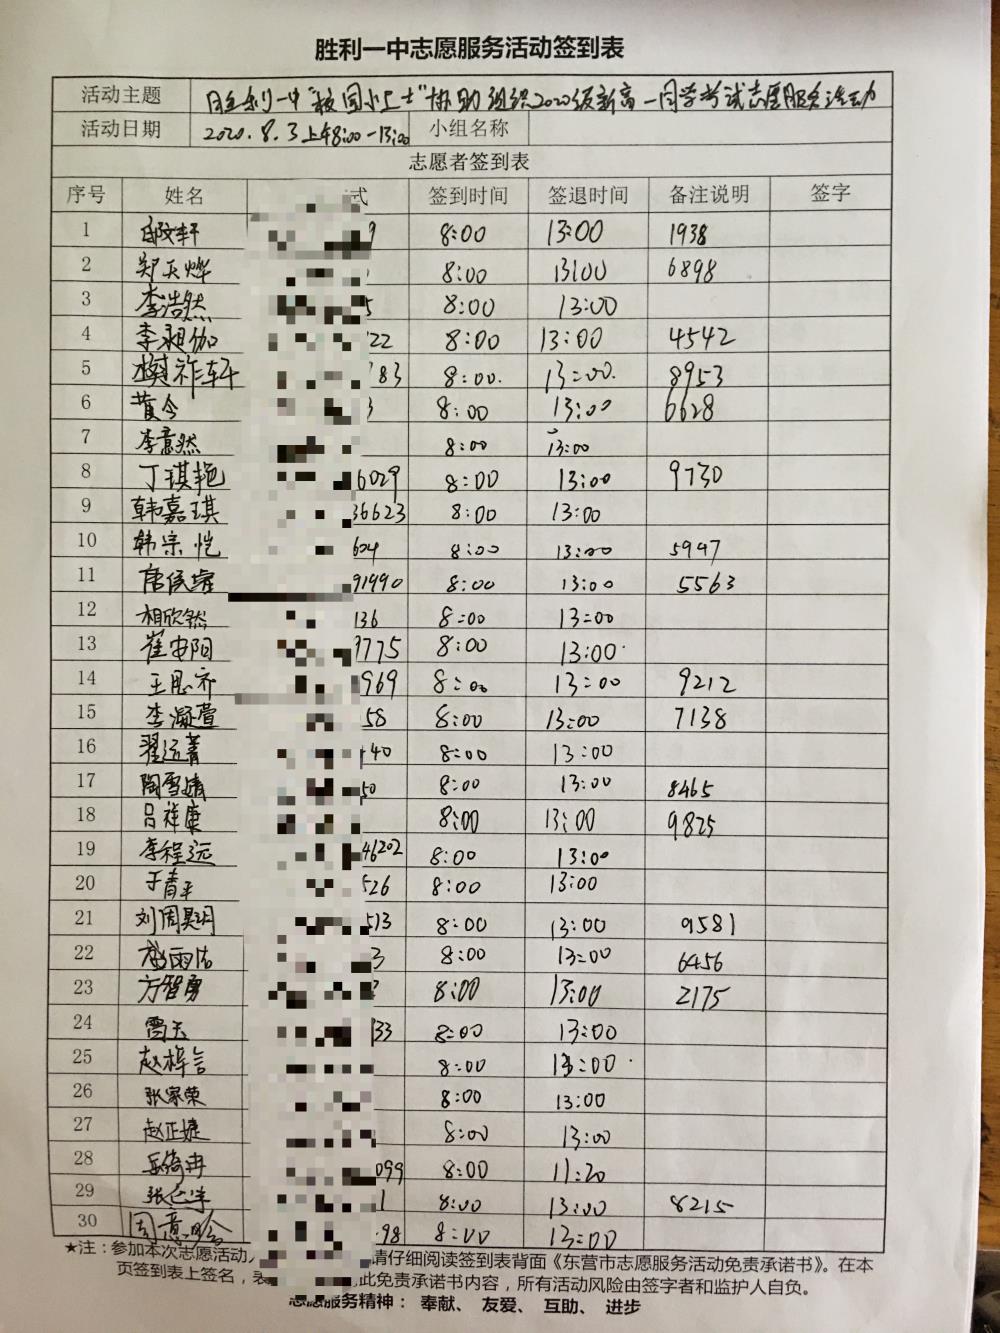 胜利一中志愿服务活动签到表
活动主题 胜利一中"校园小卫士"协助组织2020级新高一同学考试志愿服务活动
活动日期 2020.8.3上午8:00-13:00 小组名称
志愿者签到表
序号 姓名 式 签到时间 签退时间 备注说明 签字
1 邱文轩 9 8:00 13:00 1938
2 郑天烨 8:00 13:00 6898
3 李浩然 5 8:00 13:00
4 李昶伽 22 8:00 13:00 4542
5 樊祚轩 183 8:00. 13:00. 8953
6 黄令 3 8:00 13:00 6628
7 李意然 8:00 13:00
8 丁琪艳 6029 8:00 13:00 9730
9 韩嘉琪 36623 8:00 13:00
10 韩宗恺 604 8:00 13:00 5997
11 唐 91990 8:00 13:00 5563
12 相欣然 136 8:00 13:00
13 崔安阳 9775 8:00 13:00
14 王思齐 969 8:00 13:00 9212
15 李凝萱 58 8:00 13:00 7138
16 翟远菁 440 8:00 13:00
17 陶雪婧 50 8:00 13:00 8465
18 吕祥康 8:00 13:00 9825
19 李程远 46202 8:00 13:00
20 于青平 526 8:00 13:00
21 刘周昊玥 513 8:00 13:00 9581
22 雨洁 3 8:00 13:00 6456
23 方智勇 8:00 13:00 2175
24 雷天 33 8:00 13:00
25 赵梓言 8:00 13:00
26 张家荣 8:00 13:00
27 赵正婕 8:00 13:00
28 岳绮冉 099 8:00 11:20
29 张 1 8:00 13:00 8215
30 周意晗 98 8:00 13:00
★注：参加本次志愿活动 请仔细阅读签到表背面《东营市志愿服务活动免责承诺书》。在本
页签到表上签名，表 此免责承诺书内容，所有活动风险由签字者和监护人自负。
志愿服务精神： 奉献、 友爱、 互助、 进步